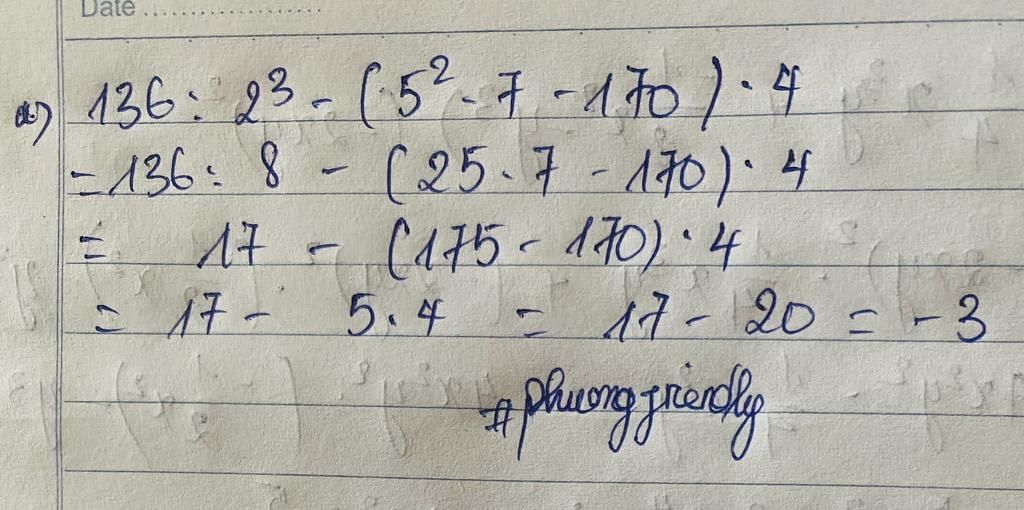 Date ....................
a) 136 : 2³ - (5² . 7 - 170) . 4
= 136 : 8 - (25 . 7 - 170) . 4
= 17 - (175 - 170) . 4
= 17 - 5 . 4 = 17 - 20 = - 3
#phuongfriendly